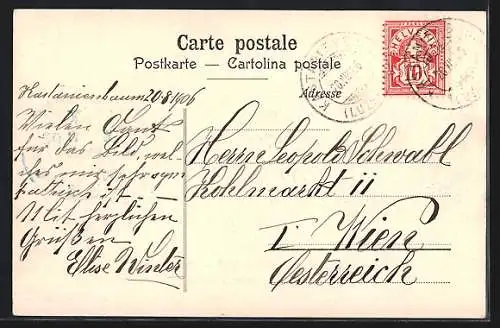 Carte postale
Postkarte — Cartolina postale
Adresse
HELVETIA
10
Kastanienbaum 20.8.1906
Vielen Dank
für das Bild, wel-
ches mir sehr sym-
pathisch ist —
Mit herzlichen
Grüßen
Elise Winter
Herrn Leopold Schwabl
Kohlmarkt 11
I. Wien
Oesterreich